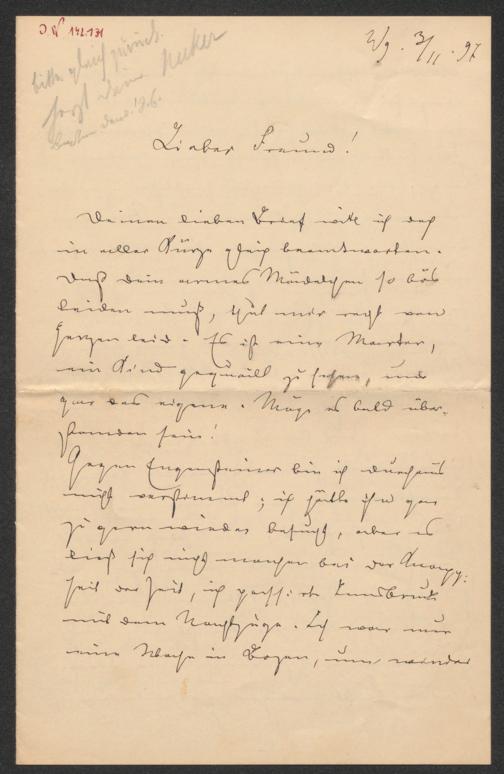 J.N 142.131
bitte gleich zurück.
Necker
3/11. 97
Lieber Freund!
Deinen lieben Brief will ich doch
in aller Kürze gleich beantworten.
Daß dein armes Mädelchen so bös
leiden muß, thut mir recht von
Herzen leid. Es ist eine Marter,
ein Kind gequält zu sehen, und
gar das eigene. Möge es bald über-
standen sein!
Gegen bin ich durchaus
nicht verstimmt; ich hätte ihn gar
zu gern wieder besucht, aber es
ließ sich nicht machen bei der Knapp-
heit der Zeit, ich passirte Innsbruck
mit dem Nachtzuge. Ich war nur
eine Woche in Bozen, um wieder